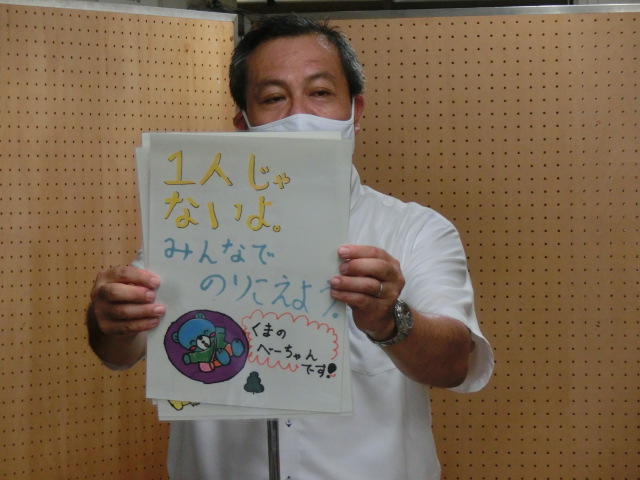 1人じゃ
ないよ。
みんなで
のりこえよう。
くまの
べーちゃん
です!